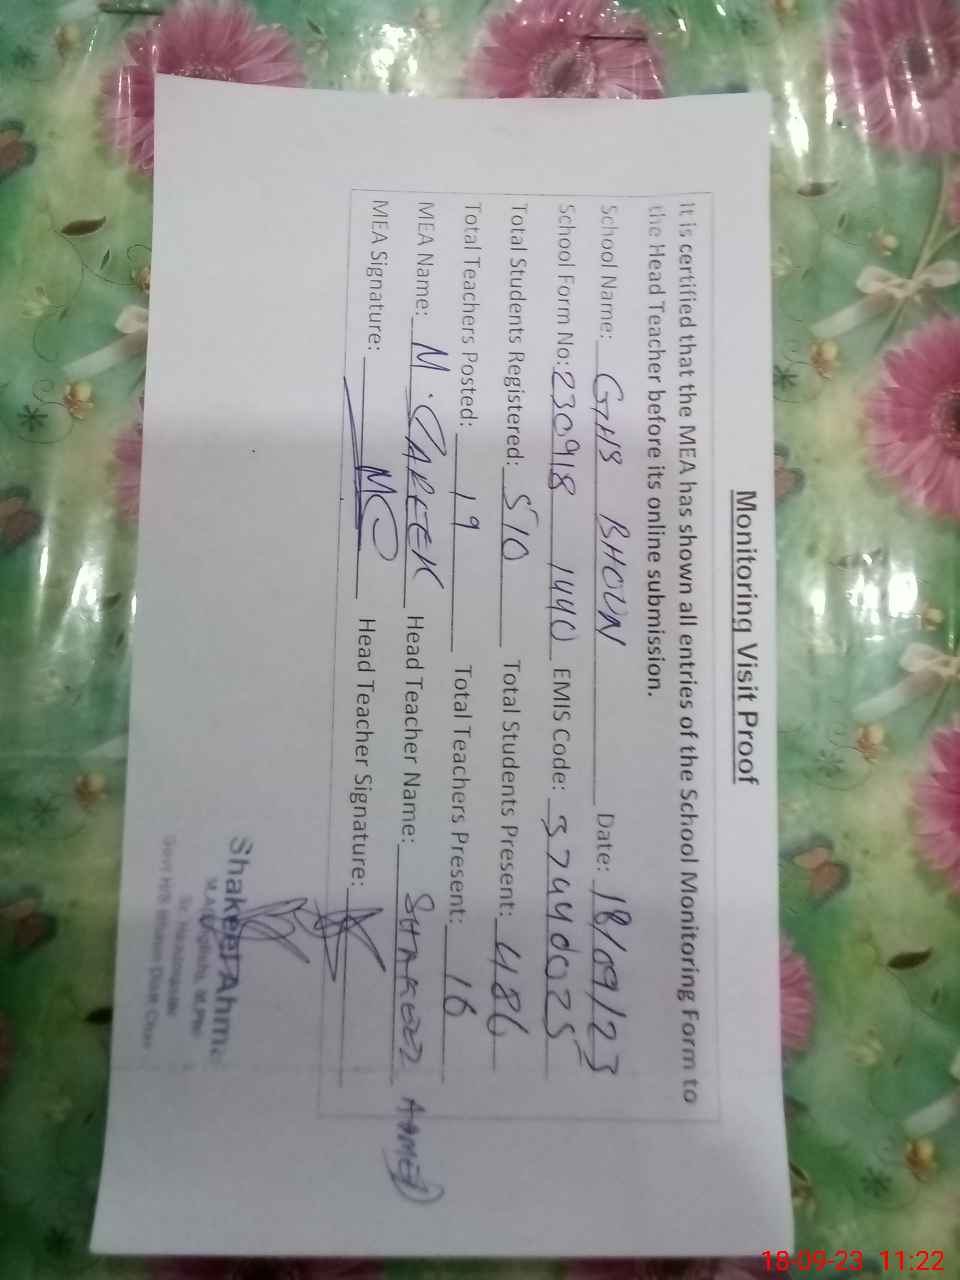 Monitoring Visit Proof
It is certified that the MEA has shown all entries of the School Monitoring Form to
the Head Teacher before its online submission.
School Name: GHS BHOUN Date: 18/09/23
School Form No: 230918 1440 EMIS Code: 37440025
Total Students Registered: 510 Total Students Present: 486
Total Teachers Posted: 19 Total Teachers Present: 16
MEA Name: M. Head Teacher Name: AHMED
MEA Signature: Head Teacher Signature:
Shakeel Ahm
Sr. Headmaster
18-09-23 11:22